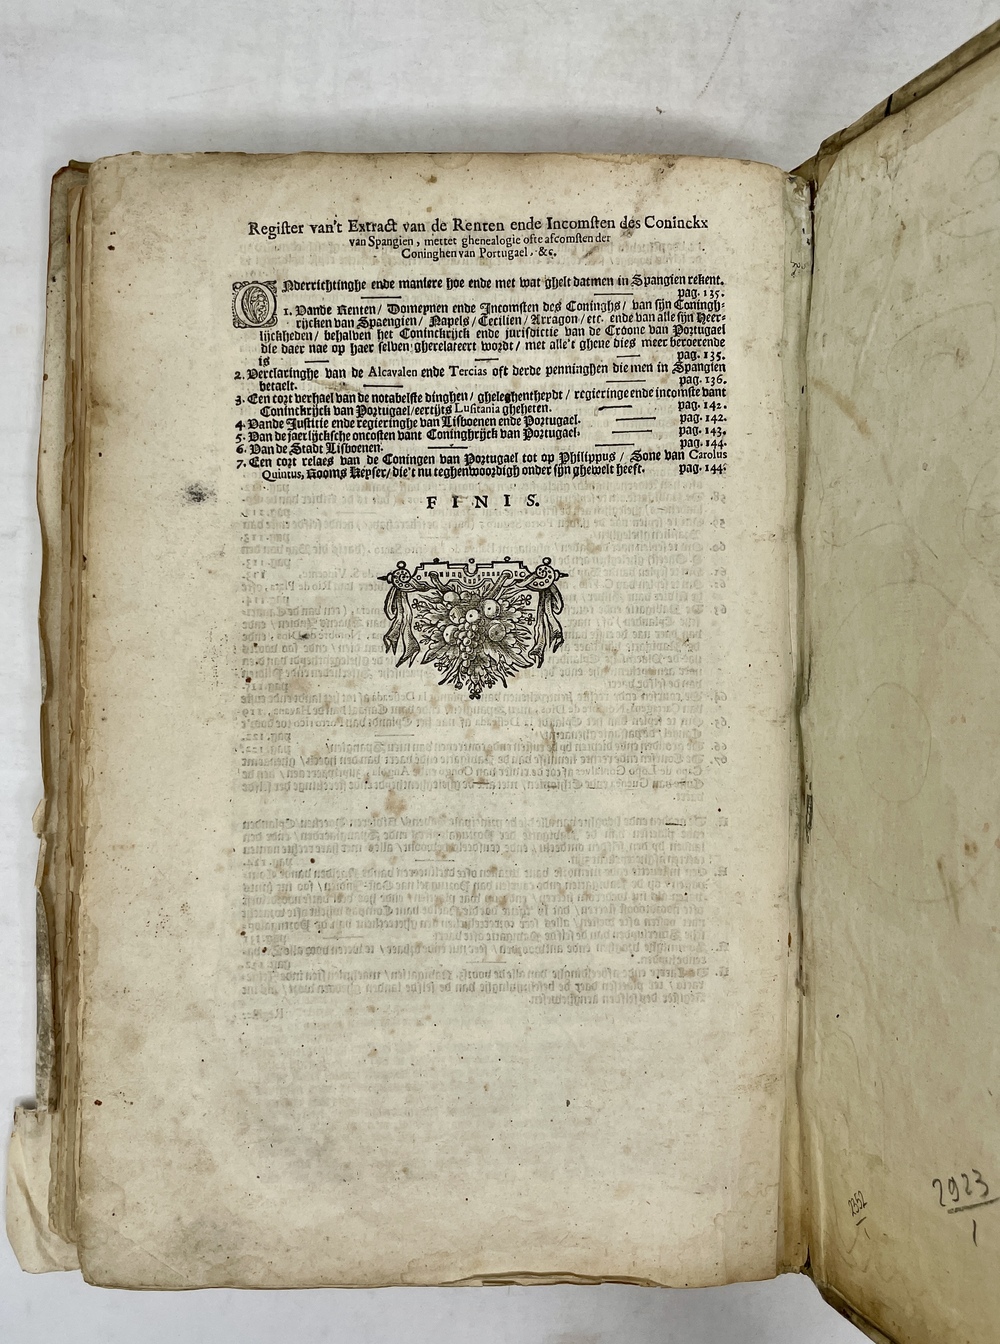 Register van't Extract van de Renten ende Incomsten des Coninckx
van Spangien, mettet ghenealogie ofte afcomsten der
Coninghen van Portugael, &c.
ONderrichtinghe ende maniere hoe ende met wat ghelt datmen in Spangien rekent.
pag. 135.
1. Vande Renten/ Domeynen ende Incomsten des Coninghs/ van sijn Coningh-
rijcken van Spaengien/ Napels/ Cecilien/ Arragon/ etc. ende van alle sijn Heer-
lijckheden/ behalven het Coninckrijck ende jurisdictie van de Croone van Portugael
die daer nae op haer selven gherelateert wordt/ met alle't ghene dies meer beroerende
is pag. 135.
2. Verclaringhe van de Alcavalen ende Tercias oft derde penninghen die men in Spangien
betaelt. pag. 136.
3. Een cort verhael van de notabelste dinghen/ gheleghentheydt/ regieringe ende incomste vant
Coninckrijck van Portugael/ eertijts Lusitania gheheten. pag. 142.
4. Vande Justitie ende regieringhe van Lisboenen ende Portugael. pag. 142.
5. Van de jaerlijcksche oncosten vant Coninghrijck van Portugael. pag. 143.
6. Van de Stadt Lisboenen. pag. 144.
7. Een cort relaes van de Coningen van Portugael tot op Philippus/ Sone van Carolus
Quintus, Rooms Keyser/ die't nu teghenwoordigh onder sijn ghewelt heeft. pag. 144.
FINIS.
2352
1
2923
1